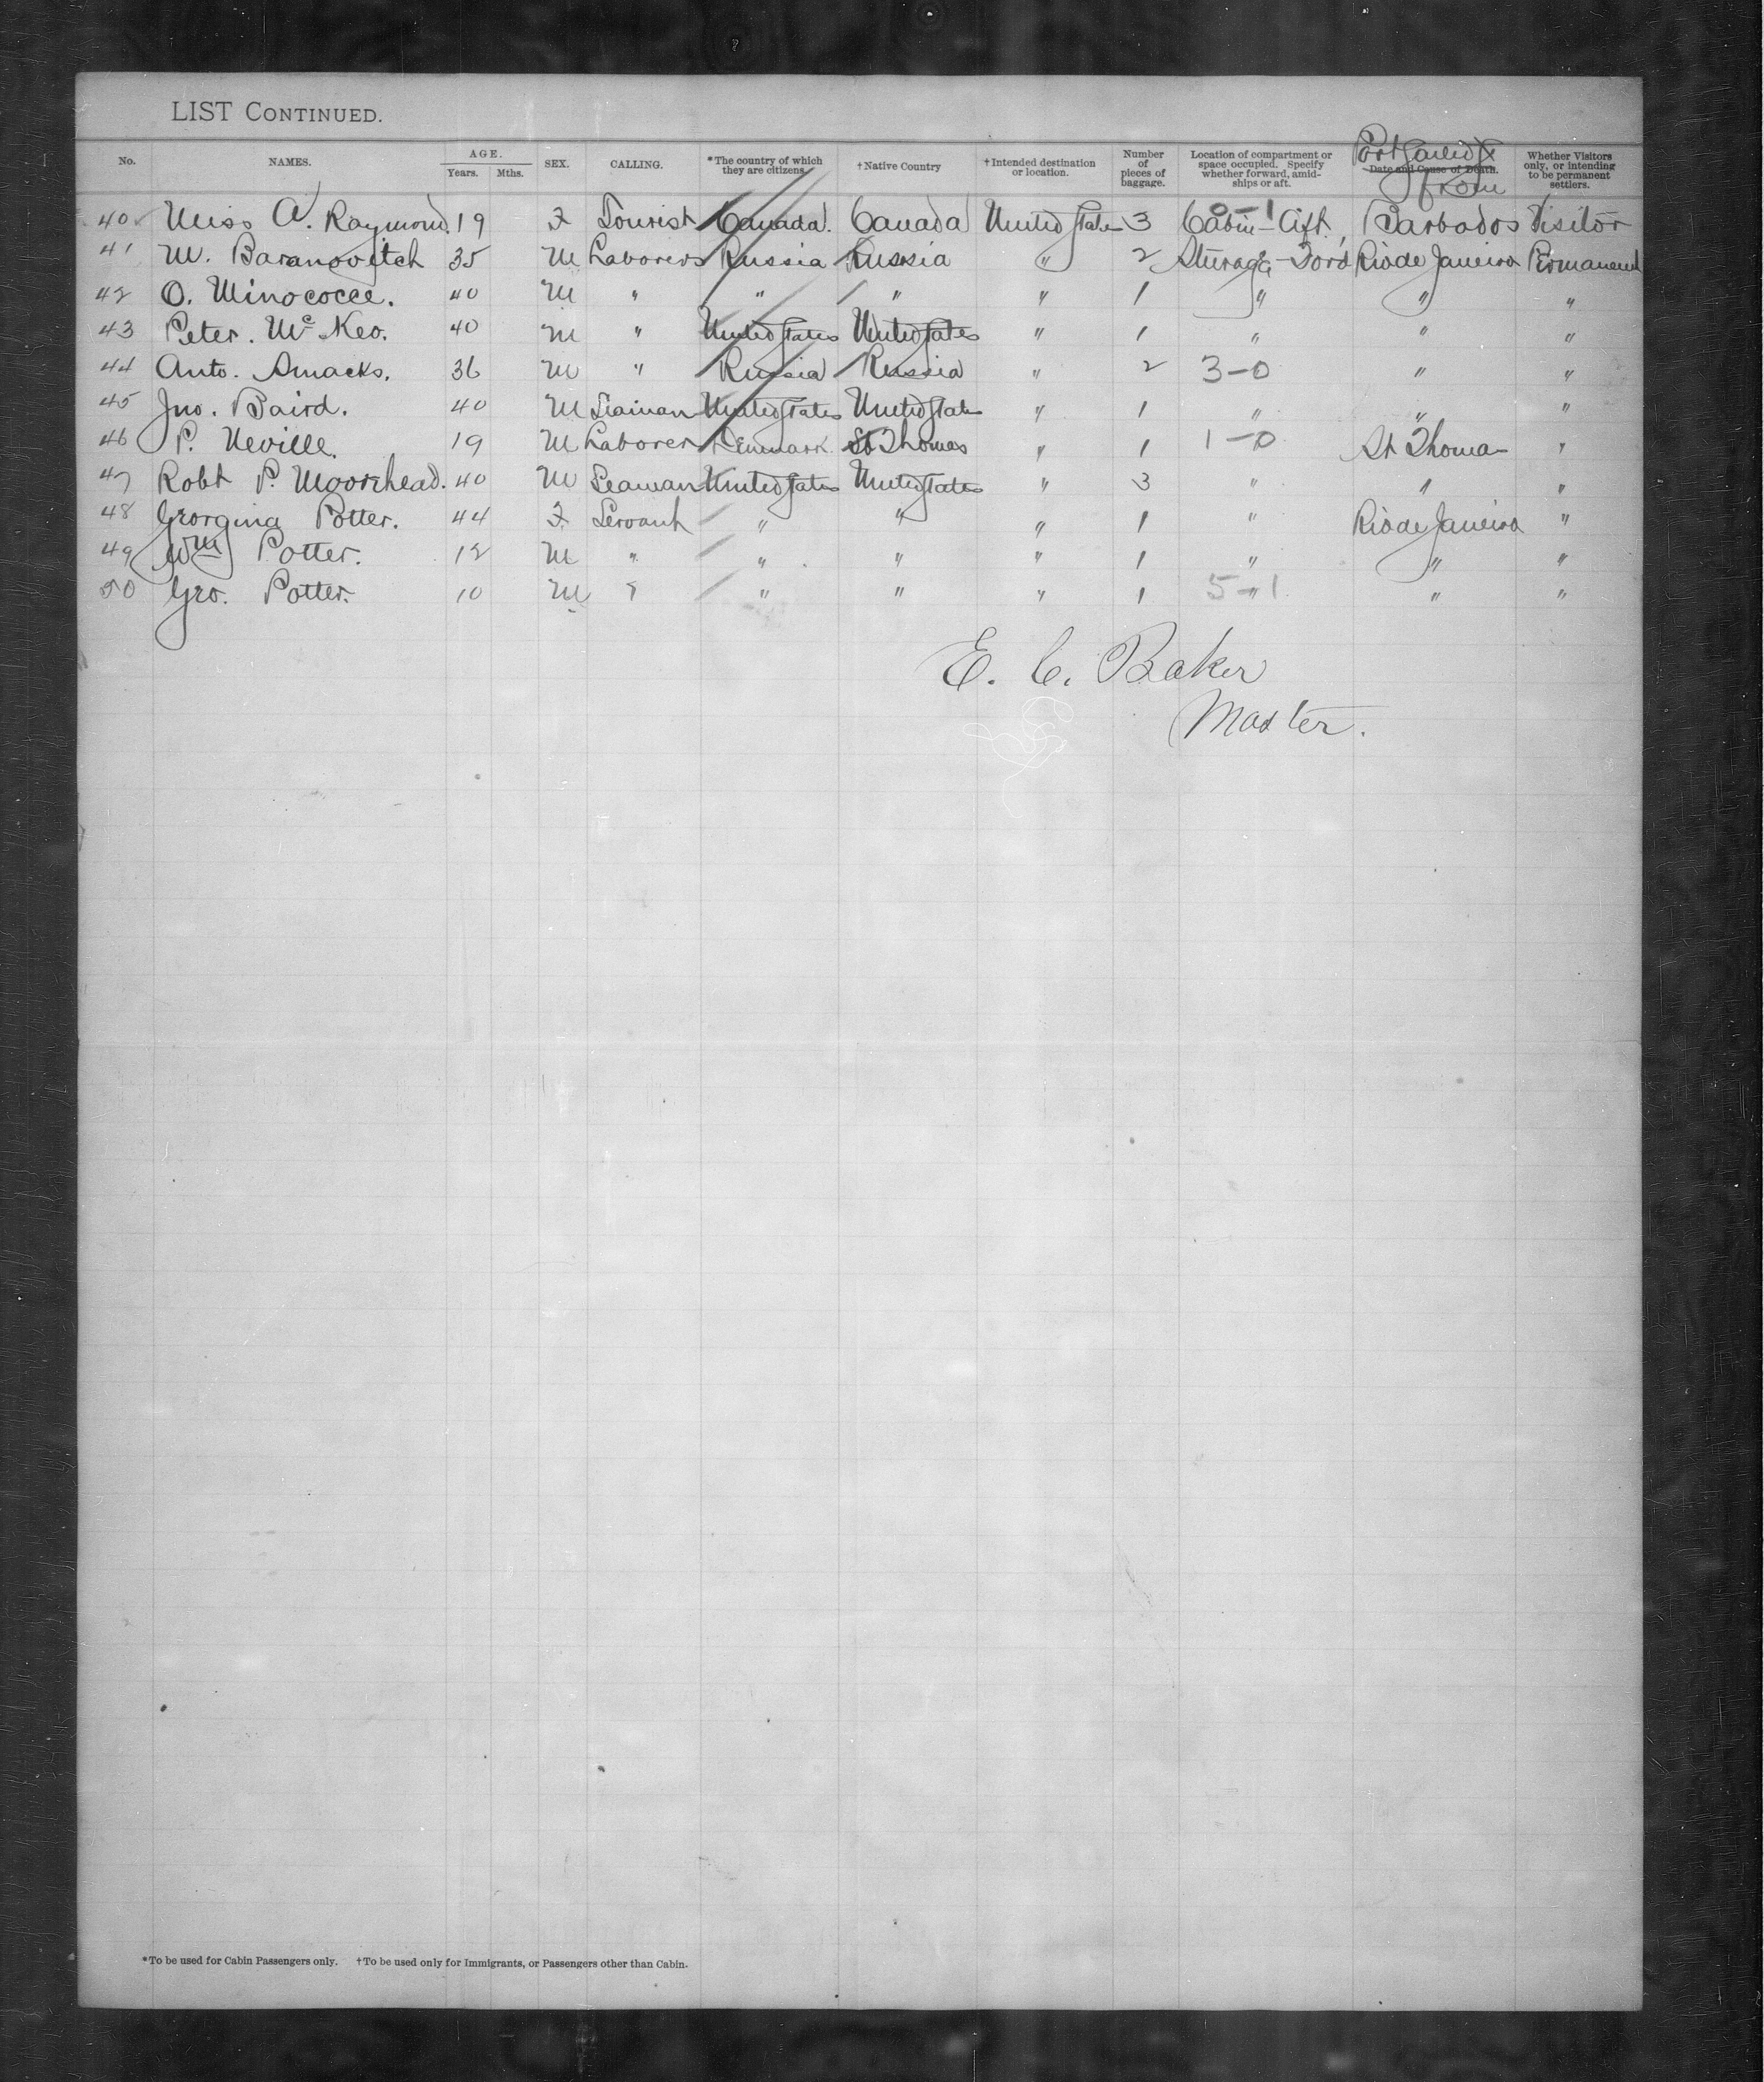 LIST CONTINUED.
No. NAMES. AGE. Years. Mths. SEX. CALLING. *The country of which they are citizens. †Native Country †Intended destination or location. Number of pieces of baggage. Location of compartment or space occupied. Specify whether forward, amidships or aft. Date and Cause of Death. Port Sailed from Whether Visitors only, or intending to be permanent settlers.
0-1
40 Miss A. Raymond 19 F Tourist Canada. Canada United States 3 Cabin-Aft, Barbados Visitor
41 M. Baranovitch 35 M Laborers Russia Russia " 2 Sturage-Ford Rio de Janeiro Permanent
42 O. Minococce. 40 M " " " " 1 " " "
43 Peter. McKeo. 40 M " United States United States " 1 " " "
44 Anto. Smacks. 36 M " Russia Russia " 2 3-0 " "
45 Jno. Baird. 40 M Seaman United States United States " 1 " " "
46 P. Neville. 19 M Laborer Denmark. St Thomas " 1 1-0 St Thomas "
47 Robt P. Moorehead. 40 M Seaman United States United States " 3 " " "
48 Georgina Potter. 44 F. Servant " " " 1 " Rio de Janeiro "
49 Wm Potter. 12 M " " " " 1 " " "
50 Geo. Potter. 10 M " " " " 1 5-1 " " "
E. C. Baker
Master.
*To be used for Cabin Passengers only. †To be used only for Immigrants, or Passengers other than Cabin.